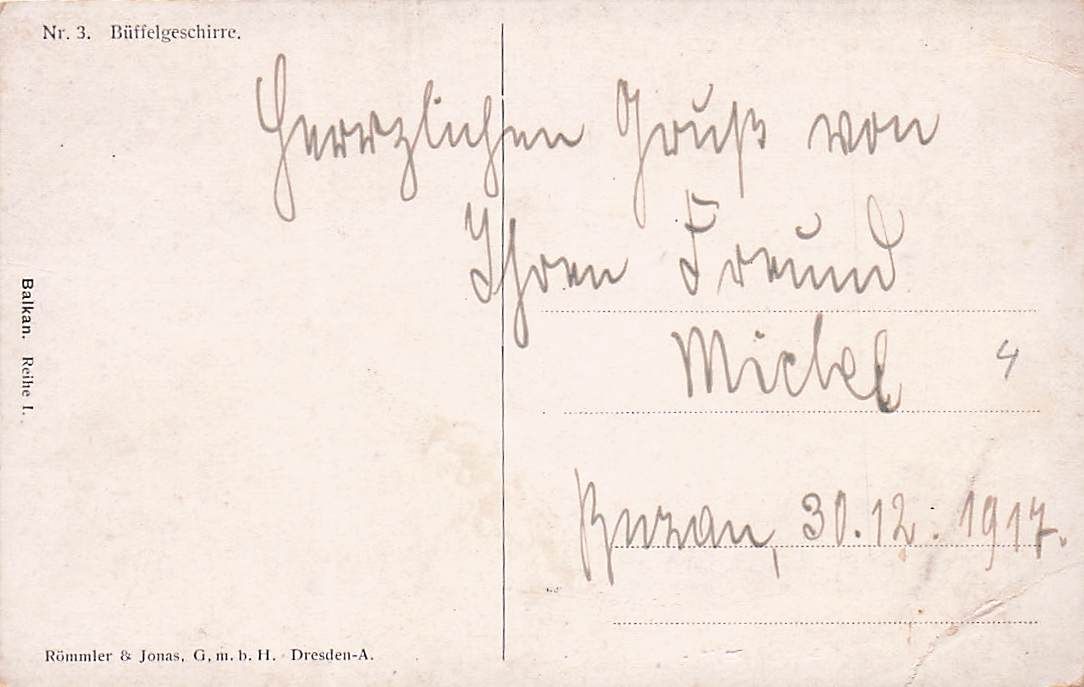 Nr. 3. Büffelgeschirre.
Herrzlichen Gruß von
Ihren Freund
Michel
4
Buzau, 30.12.1917.
Balkan. Reihe I.
Römmler & Jonas, G.m.b.H. Dresden-A.